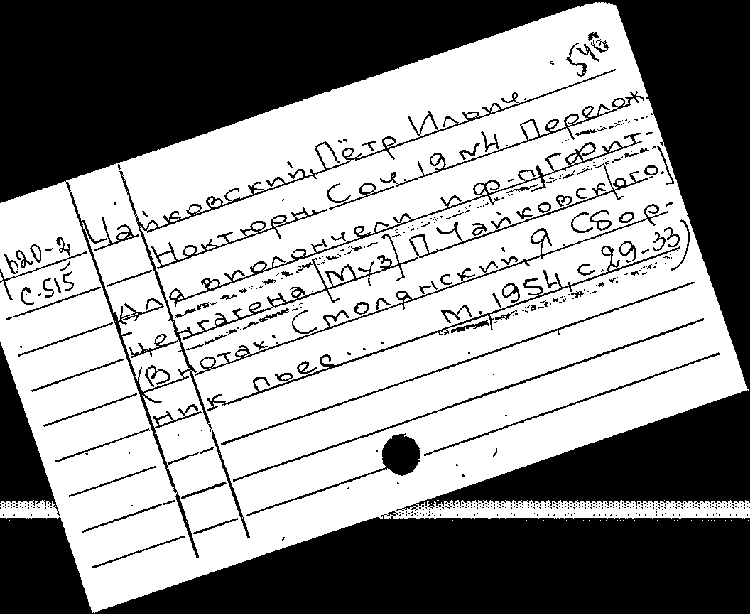 540
Чайковский, Пётр Ильич
Ноктюрн. Соч. 19 №4 Перелож.
для виолончели и ф-п Г. Фит-
ценгагена [Муз] П Чайковск[ого.]
(В нотах: Столянский, Я. Сбор-
ник пьес... М., 1954, с 29-33)
С-515